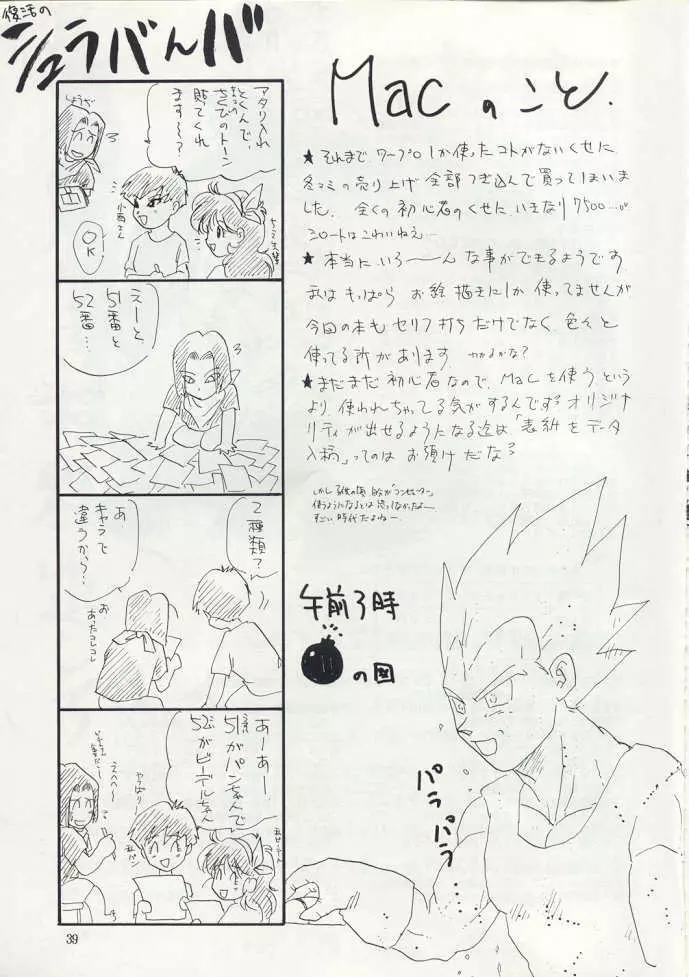 復活の
シュラバんバ
アタリ入れ
とくんで、
さくびのトーン
貼ってくれ
ます〜?
しょうが
OK
えーと、
51番と
52番…
2種類?
あ
キャラで
違うから?
お
あったコレコレ
あーあー
51がパンちゃんで
52がビーデルちゃん
えへへー
やっぱり
39
Macのこと.
★それまでワープロしか使ったコトがないくせに
冬コミの売り上げ全部つぎ込んで買ってしまいま
した. 全くの初心者のくせにいきなり7500…
シロートはこわいねえ…
★本当にいろーーんな事ができるようです
私はもっぱらお絵描きにしか使ってませんが
今回の本もセリフ打ちだけでなく色々と
使ってる所があります. わかるかな?
★まだまだ初心者なので、Macを使うという
より、使われちゃってる気がするんです オリジナ
リティが出せるようになる迄は「表紙をデータ
入稿」ってのはお預けだな
使うようになるとは思ってなかったよー
すごい時代だよねー
午前3時
の図
パラ
パラ